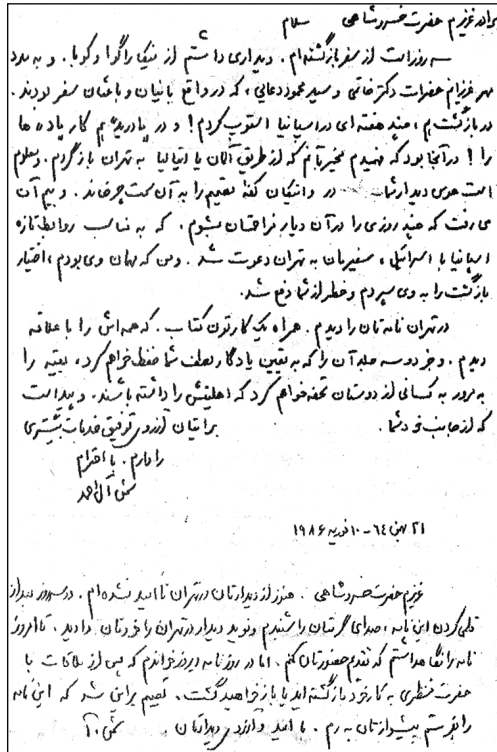 برادر عزیزم حضرت خسروشاهی سلام
سه روز است از سفر بازگشته‌ام. دیداری داشتم از نیکاراگوا و کوبا. و به مدد
مهر عزیزانم حضرات دکتر خاتمی و سید محمود دعایی، که در واقع بانیان و باعثان سفر بودند.
در بازگشت هم، چند هفته‌ای در اسپانیا استوپ کردم! و در مادرید هم کار یاده‌ها
را! در آنجا بود که فهمیدم مخیرتانم که از طریق آلمان یا ایتالیا به تهران بازگردم. معلوم
است هوس دیدار شما در واتیکان کفهٔ تصمیم را به آن سمت چرخاند. و بیم آن
می‌رفت که چند روزی را در آن دیار مزاحمتان بشوم. که به مناسبت روابط تازه
اسپانیا با اسرائیل، سفیرمان به تهران دعوت شد. و من که مهمان وی بودم، اختیار
بازگشت را به وی سپردم و خطر از شما دفع شد.
در تهران نامه‌تان را دیدم. همراه یک کارتون کتاب. که همه‌اش را با علاقه
دیدم. و جز دو سه جلد آن را که به تعیین یادگار لطف شما حفظ خواهم کرد، بقیه را
به مرور به کسانی از دوستان تحفه خواهم کرد که اهلیتش را داشته باشند. و پیداست
که از جانب خود شما. برایتان آرزوی توفیق خدمات بیشتری
را دارم. با احترام
شمس آل احمد
۲۱ بهمن ۶۴ - ۱۰ فوریه ۱۹۸۶
عزیزم حضرت خسروشاهی. هنوز از دیدارتان در تهران ناامید نشده‌ام. دو سه روز بعد از
قلمی کردن این نامه، صدای گرمتان را شنیدم و نوید دیدار در تهران را خودتان دادید. تا امروز
نامه را نگاه داشتم که تقدیم حضورتان کنم. اما در روزنامه دیروز خواندم که پس از ملاقات با
حضرت منتظری به کار خود بازگشته‌اید یا باز خواهید گشت. تصمیم بر این شد که این نامه
را بفرستم پیشوازتان به رم. با امید و آرزوی دیدارتان شمس.آ